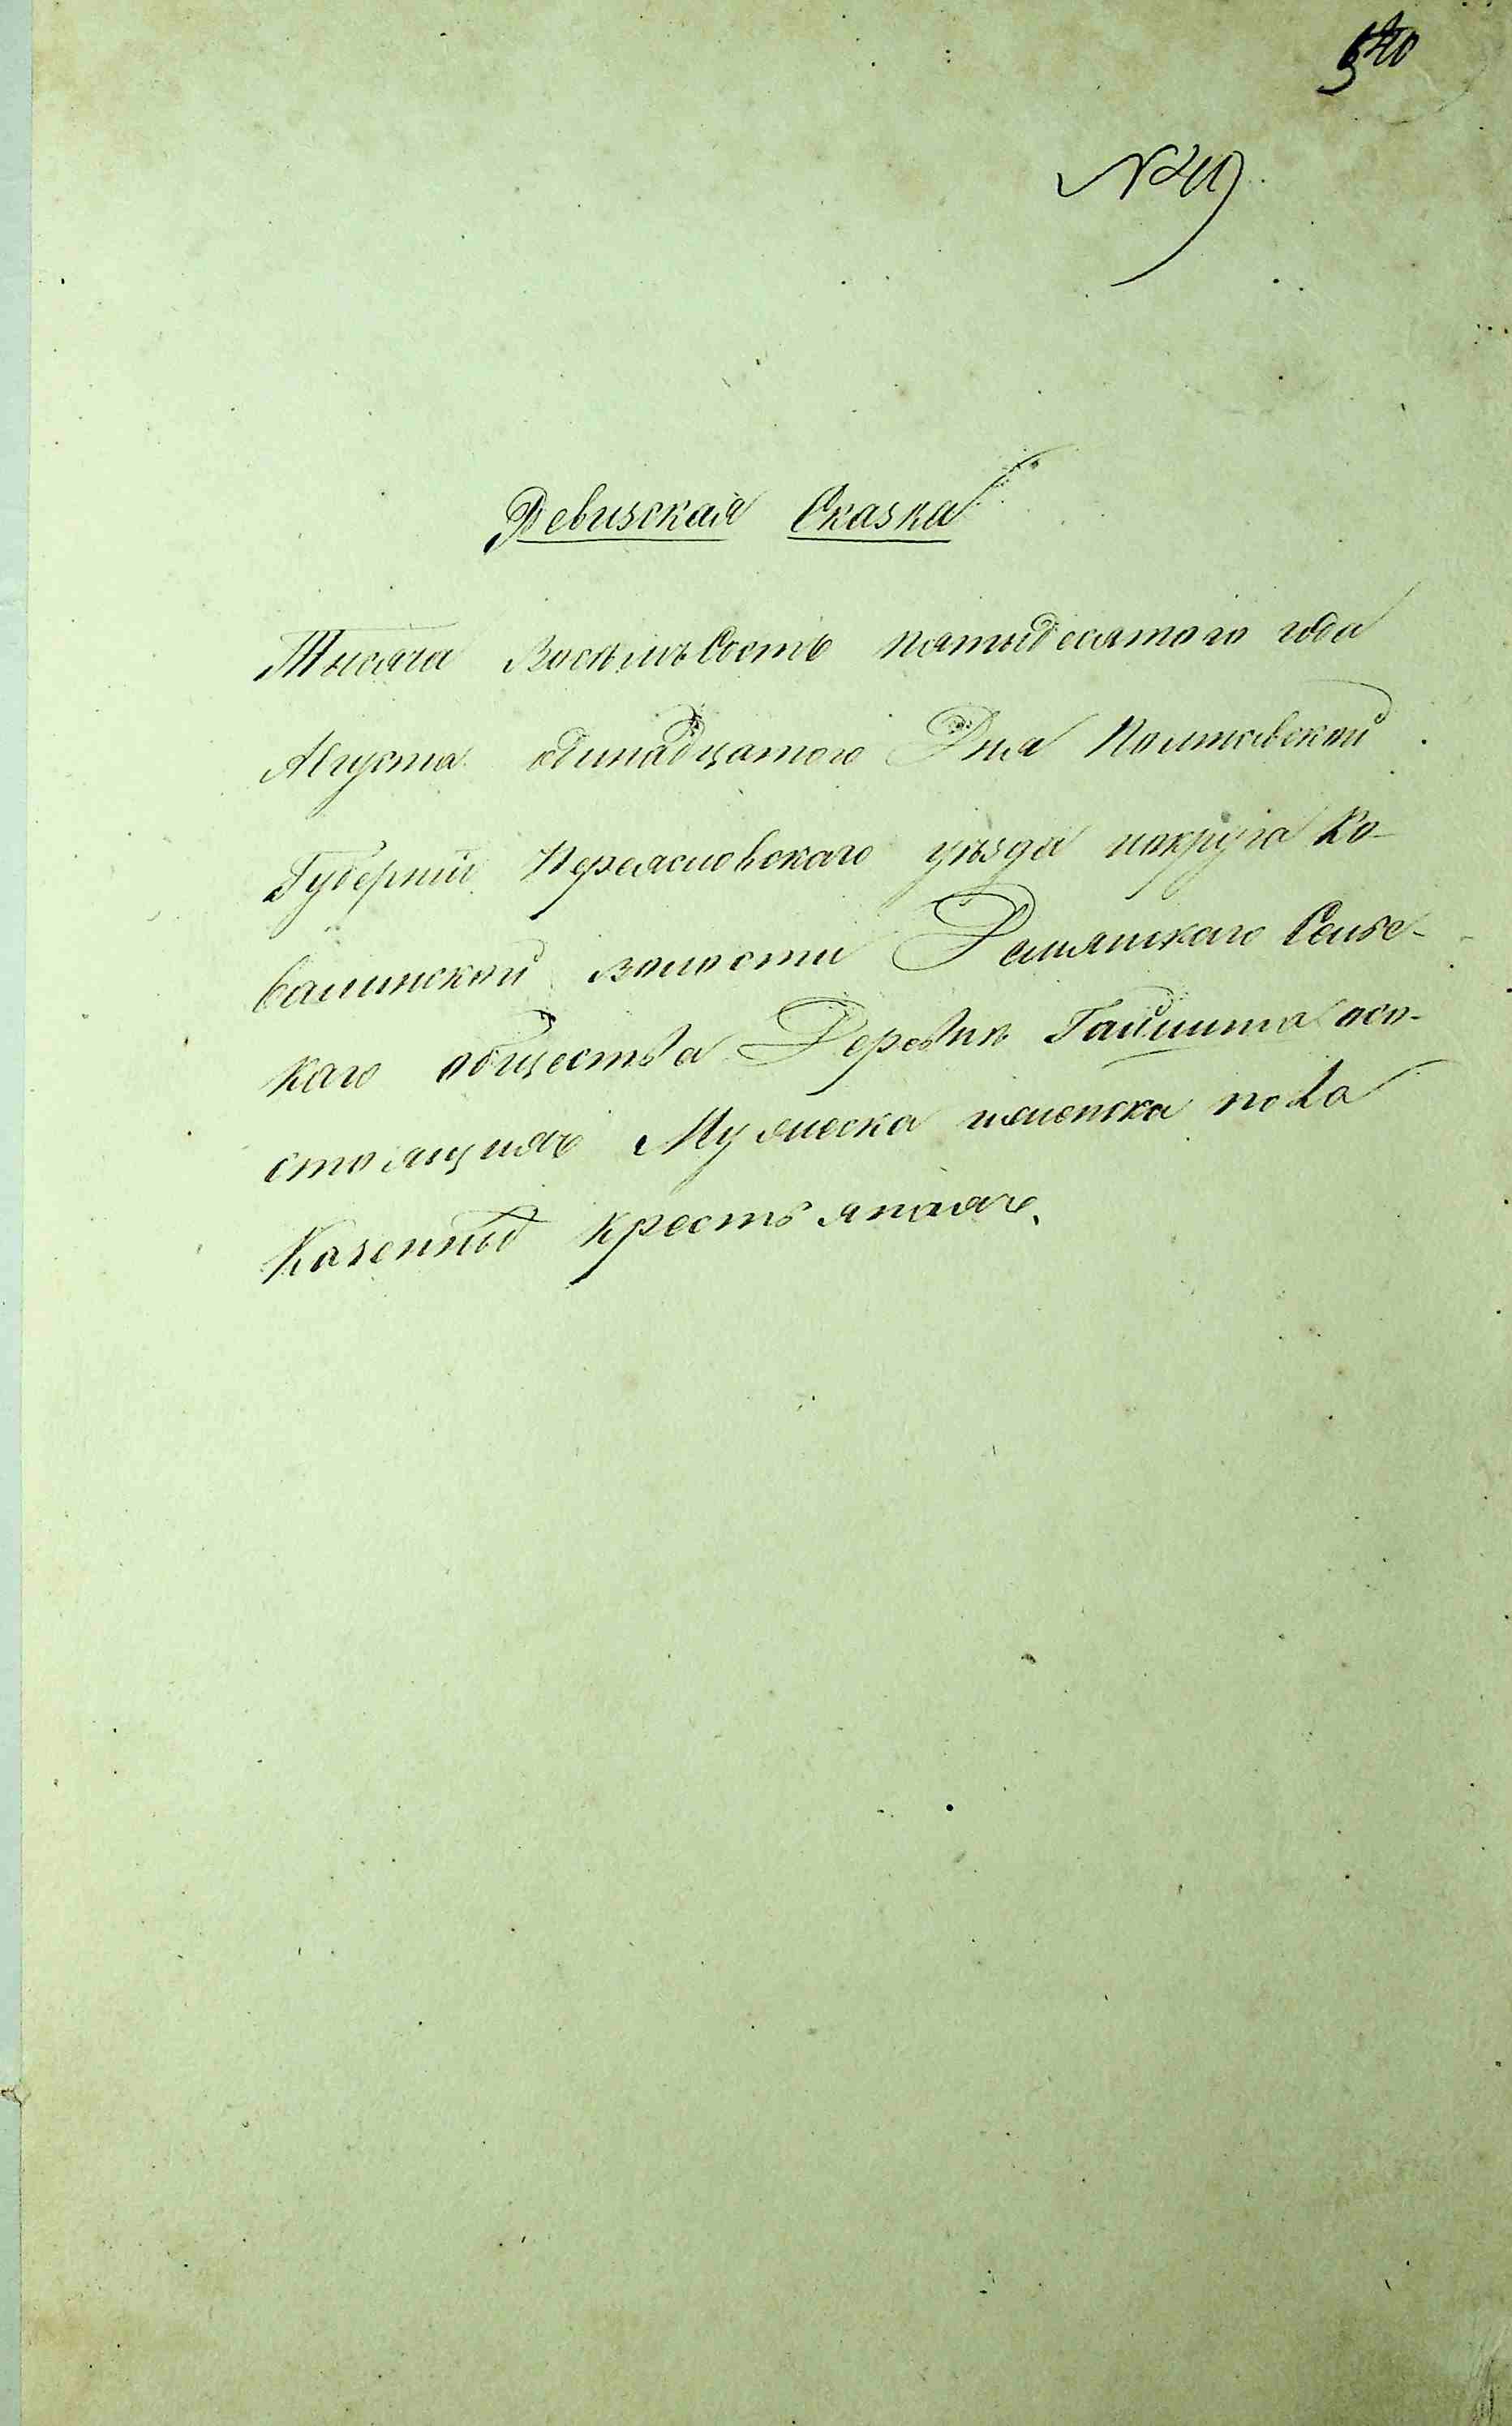 540
№ 49
Ревизская Сказка
Тысяча Восемьсотъ пятьідесятого года
Августа одинадцатого Дня Полтавской
Губерніи Переясловского уѣзда и округа Ко-
валинской волости Демянского Сельс-
каго общества Деревнѣ Гайшина осо-
стоящихъ Мужеска иженска пола
Казенныхъ крестьянахъ